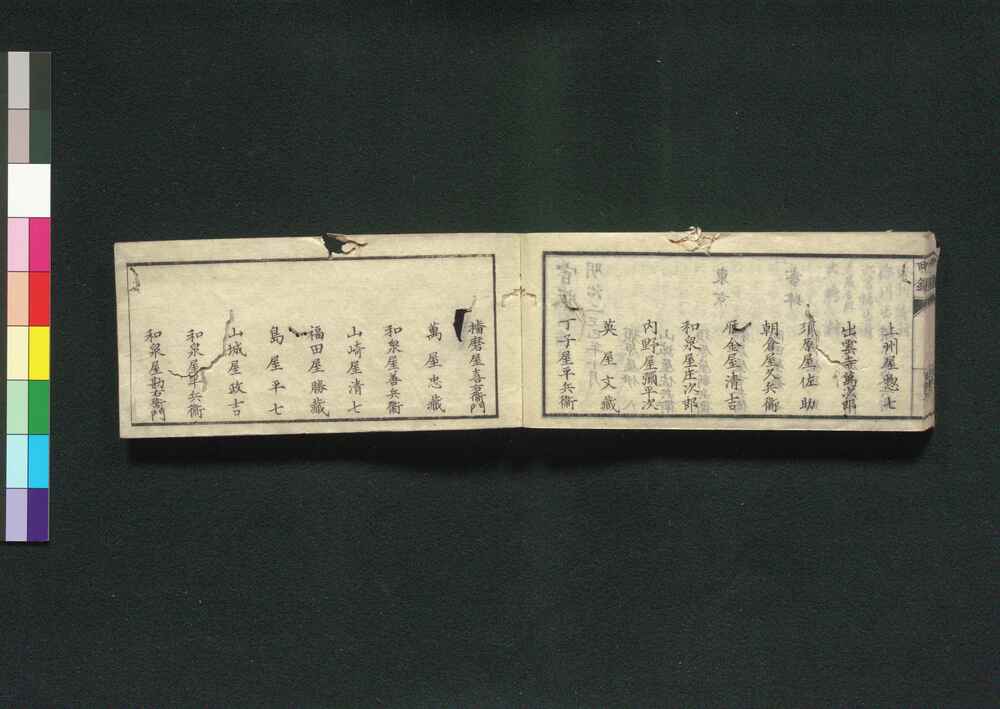 上州屋惣七
出雲寺萬次郎
須原屋佐助
朝倉屋久兵衞
雁金屋清吉
和泉屋庄次郎
内野屋彌平次
英屋文藏
丁子屋平兵衞
播磨屋喜右衞門
萬屋忠藏
和泉屋善兵衞
山崎屋清七
福田屋勝藏
島屋平七
山城屋政吉
和泉屋半兵衞
和泉屋勘右衞門